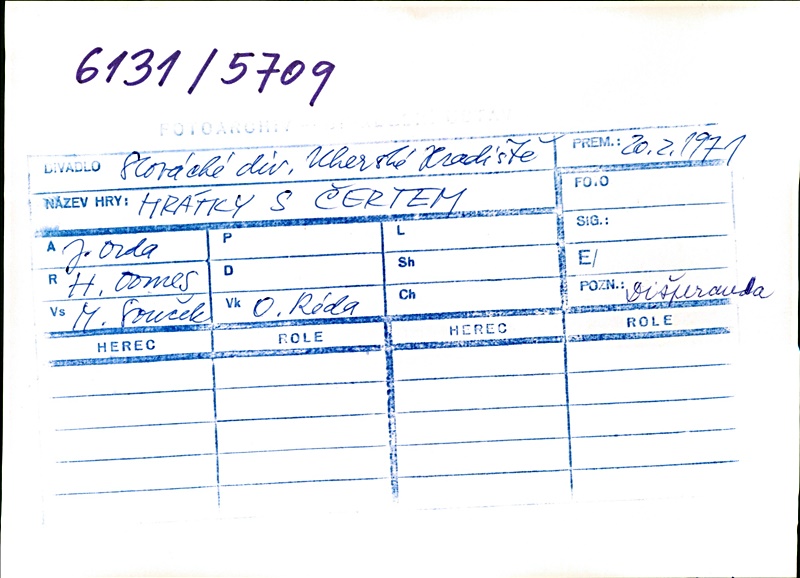 6131/5709
FOTOARCHIV
DIVADLO Slovácké div. Uherské Hradiště PREM.: 20.2.1971
NÁZEV HRY: HRÁTKY S ČERTEM FO.O
SIG.:
A J. Drda P L
R H. Domes D Sh E/
Vs M. Souček Vk O. Réda Ch POZN.: Dišperanda
HEREC ROLE HEREC ROLE